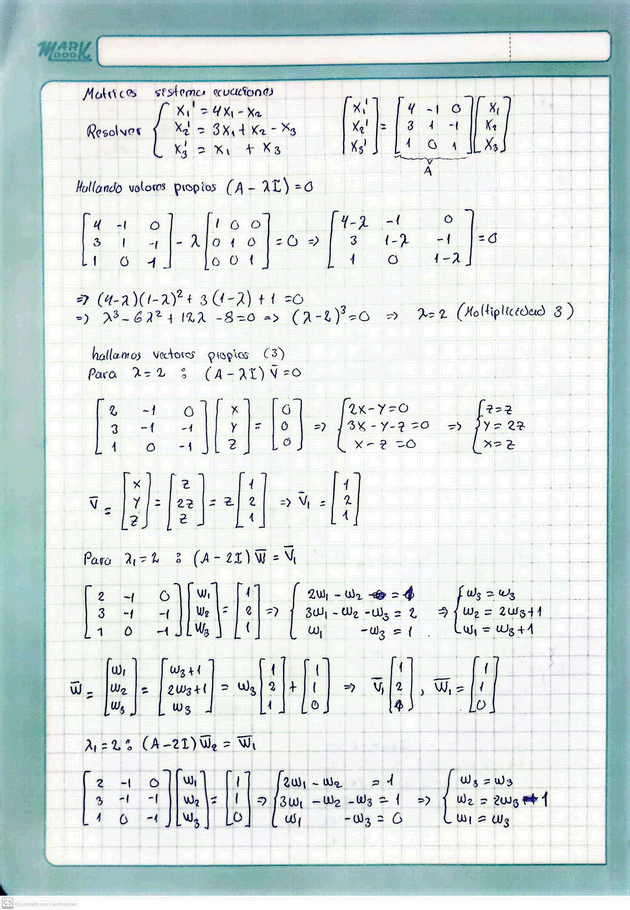 MARK BOOK
Matrices sistema ecuaciones
Resolver { x₁' = 4x₁ - x₂
x₂' = 3x₁ + x₂ - x₃
x₃' = x₁ + x₃
[x₁' x₂' x₃'] = [4 -1 0; 3 1 -1; 1 0 1] [x₁ x₂ x₃]
A
Hallando valores propios (A - λI) = 0
[4 -1 0; 3 1 -1; 1 0 -1] - λ [1 0 0; 0 1 0; 0 0 1] = 0 => [4-λ -1 0; 3 1-λ -1; 1 0 1-λ] = 0
=> (4-λ)(1-λ)² + 3(1-λ) + 1 = 0
=> λ³ - 6λ² + 12λ - 8 = 0 => (λ-2)³ = 0 => λ = 2 (Moltiplicidad 3)
hallamos vectores propios (3)
Para λ = 2 : (A - λI) V̄ = 0
[2 -1 0; 3 -1 -1; 1 0 -1] [x y z] = [0 0 0] => { 2x - y = 0; 3x - y - z = 0; x - z = 0 => { z = z; y = 2z; x = z
V̄ = [x y z] = [z 2z z] = z [1 2 1] => V̄₁ = [1 2 1]
Para λ₁ = 2 : (A - 2I) W̄ = V̄₁
[2 -1 0; 3 -1 -1; 1 0 -1] [w₁ w₂ w₃] = [1 2 1] => { 2w₁ - w₂ = 1; 3w₁ - w₂ - w₃ = 2; w₁ - w₃ = 1 => { w₃ = w₃; w₂ = 2w₃ + 1; w₁ = w₃ + 1
W̄ = [w₁ w₂ w₃] = [w₃+1 2w₃+1 w₃] = w₃ [1 2 1] + [1 1 0] => V̄₁ [1 2 1], W̄₁ = [1 1 0]
λ₁ = 2 : (A - 2I) W̄₂ = W̄₁
[2 -1 0; 3 -1 -1; 1 0 -1] [w₁ w₂ w₃] = [1 1 0] => { 2w₁ - w₂ = 1; 3w₁ - w₂ - w₃ = 1; w₁ - w₃ = 0 => { w₃ = w₃; w₂ = 2w₃ - 1; w₁ = w₃
CS Escaneado con CamScanner